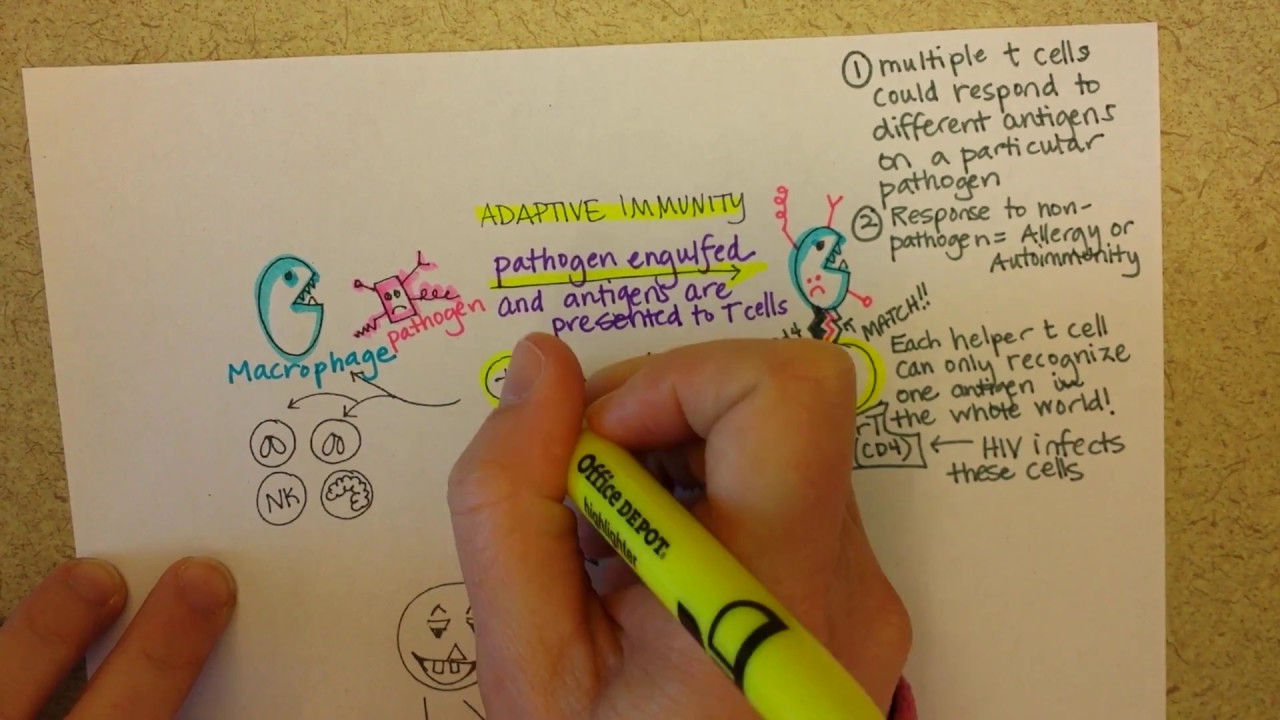 ① multiple t cells
could respond to
different antigens
on a particular
pathogen
② Response to non-
pathogen = Allergy or
Autoimmunity
ADAPTIVE IMMUNITY
pathogen engulfed
and antigens are
presented to T cells
pathogen
Macrophage
MATCH!!
Each helper t cell
can only recognize
one antigen in
the whole world!
(CD4) ← HIV infects
these cells
NK
Office DEPOT
highlighter